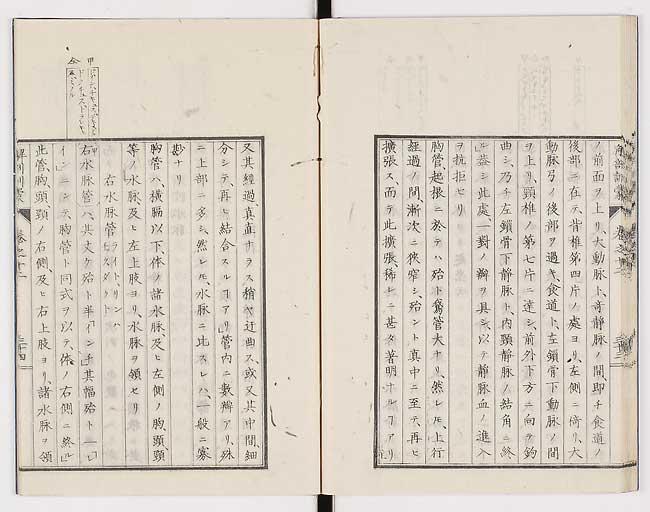 ノ前面ヲ上リ、大動脈ト、奇静脈ノ間、即チ食道ノ
後部ニ在テ、背椎第四片ノ處ヨリ、左側ニ倚リ、大
動脈弓ノ後部ヲ過キ、食道ト、左鎖骨下動脈ノ間
ヲ上リ、頸椎ノ第七片ニ達シ、前外下方ニ向テ鈎
曲シ、乃チ左鎖骨下静脈ト、内頸静脈ノ結角ニ終
ル、蓋シ此處一對ノ瓣ヲ具シ、以テ静脈血ノ進入
ヲ抗拒セリ
胸管起根ニ於テハ殆ト鵞管大ナリ、然レ𪜈、上行
經過ノ間、漸次ニ狹窄シ、殆ント真中ニ至テ、再ヒ
擴張ス、而テ此擴張、稀レニ甚タ著明ナルヿアリ、
又其經過真直ナラス、稍ヤ迂曲ス、或ハ又其中間、細
分シテ再ヒ結合スルヿアリ、管内ニ數瓣アリ、殊
ニ上部ニ多シ、然レ𪜈、水脈ニ比スレハ、一般ニ寡
尠ナリ
胸管ハ、横膈以下、体ノ諸水脈及ヒ左側ノ胸頭頸
等ノ水脈及ヒ左上肢ヨリ水脈ヲ領セリ
右水脈管
右水脈管ハ、其丈ケ殆ト半インチ其幅殆ト一「レ
インニシテ、胸管ト同式ヲ以テ、体ノ右側ニ終ル、
此管、胸頭頸ノ右側、及ヒ右上肢ヨリ、諸水脈ヲ領
卷之十二
三十四